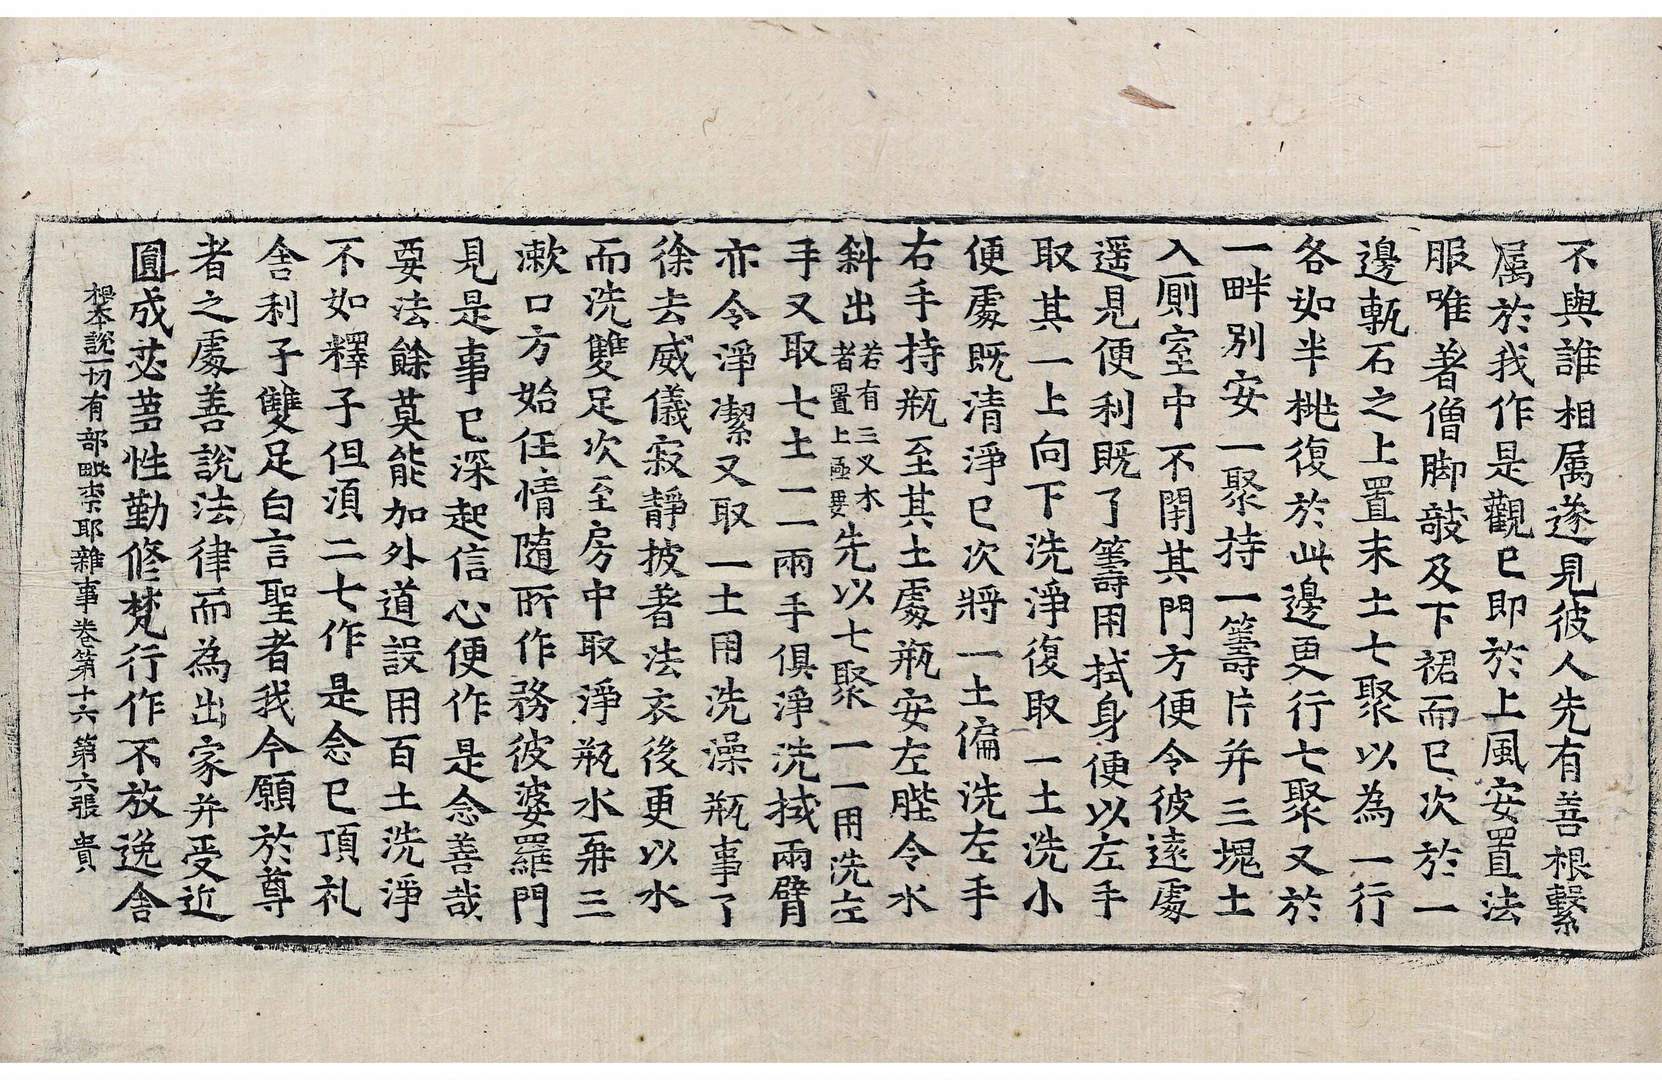 不與誰相属遂見彼人先有善根繫
属於我作是觀已即於上風安置法
服唯著僧脚敧及下裙而已次於一
邊甎石之上置末土七聚以為一行
各如半桃復於此邊更行七聚又於
一畔別安一聚持一籌片并三塊土
入厠室中不閉其門方便令彼遠處
遥見便利既了籌用拭身便以左手
取其一上向下洗淨復取一土洗小
便處既清淨已次將一土偏洗左手
右手持瓶至其土處瓶安左䏶令水
斜出若有三叉木者置上極要先以七聚一一用洗左
手又取七土一一兩手俱淨洗拭兩臂
亦令淨潔又取一土用洗澡瓶事了
徐去威儀寂靜披著法衣後更以水
而洗雙足次至房中取淨瓶水再三
漱口方始任情隨所作務彼婆羅門
見是事已深起信心便作是念善哉
要法餘莫能加外道設用百土洗淨
不如釋子但湏二七作是念已頂礼
舍利子雙足白言聖者我今願於尊
者之處善說法律而為出家并受近
圓成苾蒭性勤修梵行作不放逸舍
根本說一切有部毗柰耶雜事卷第十六 第六張 貴